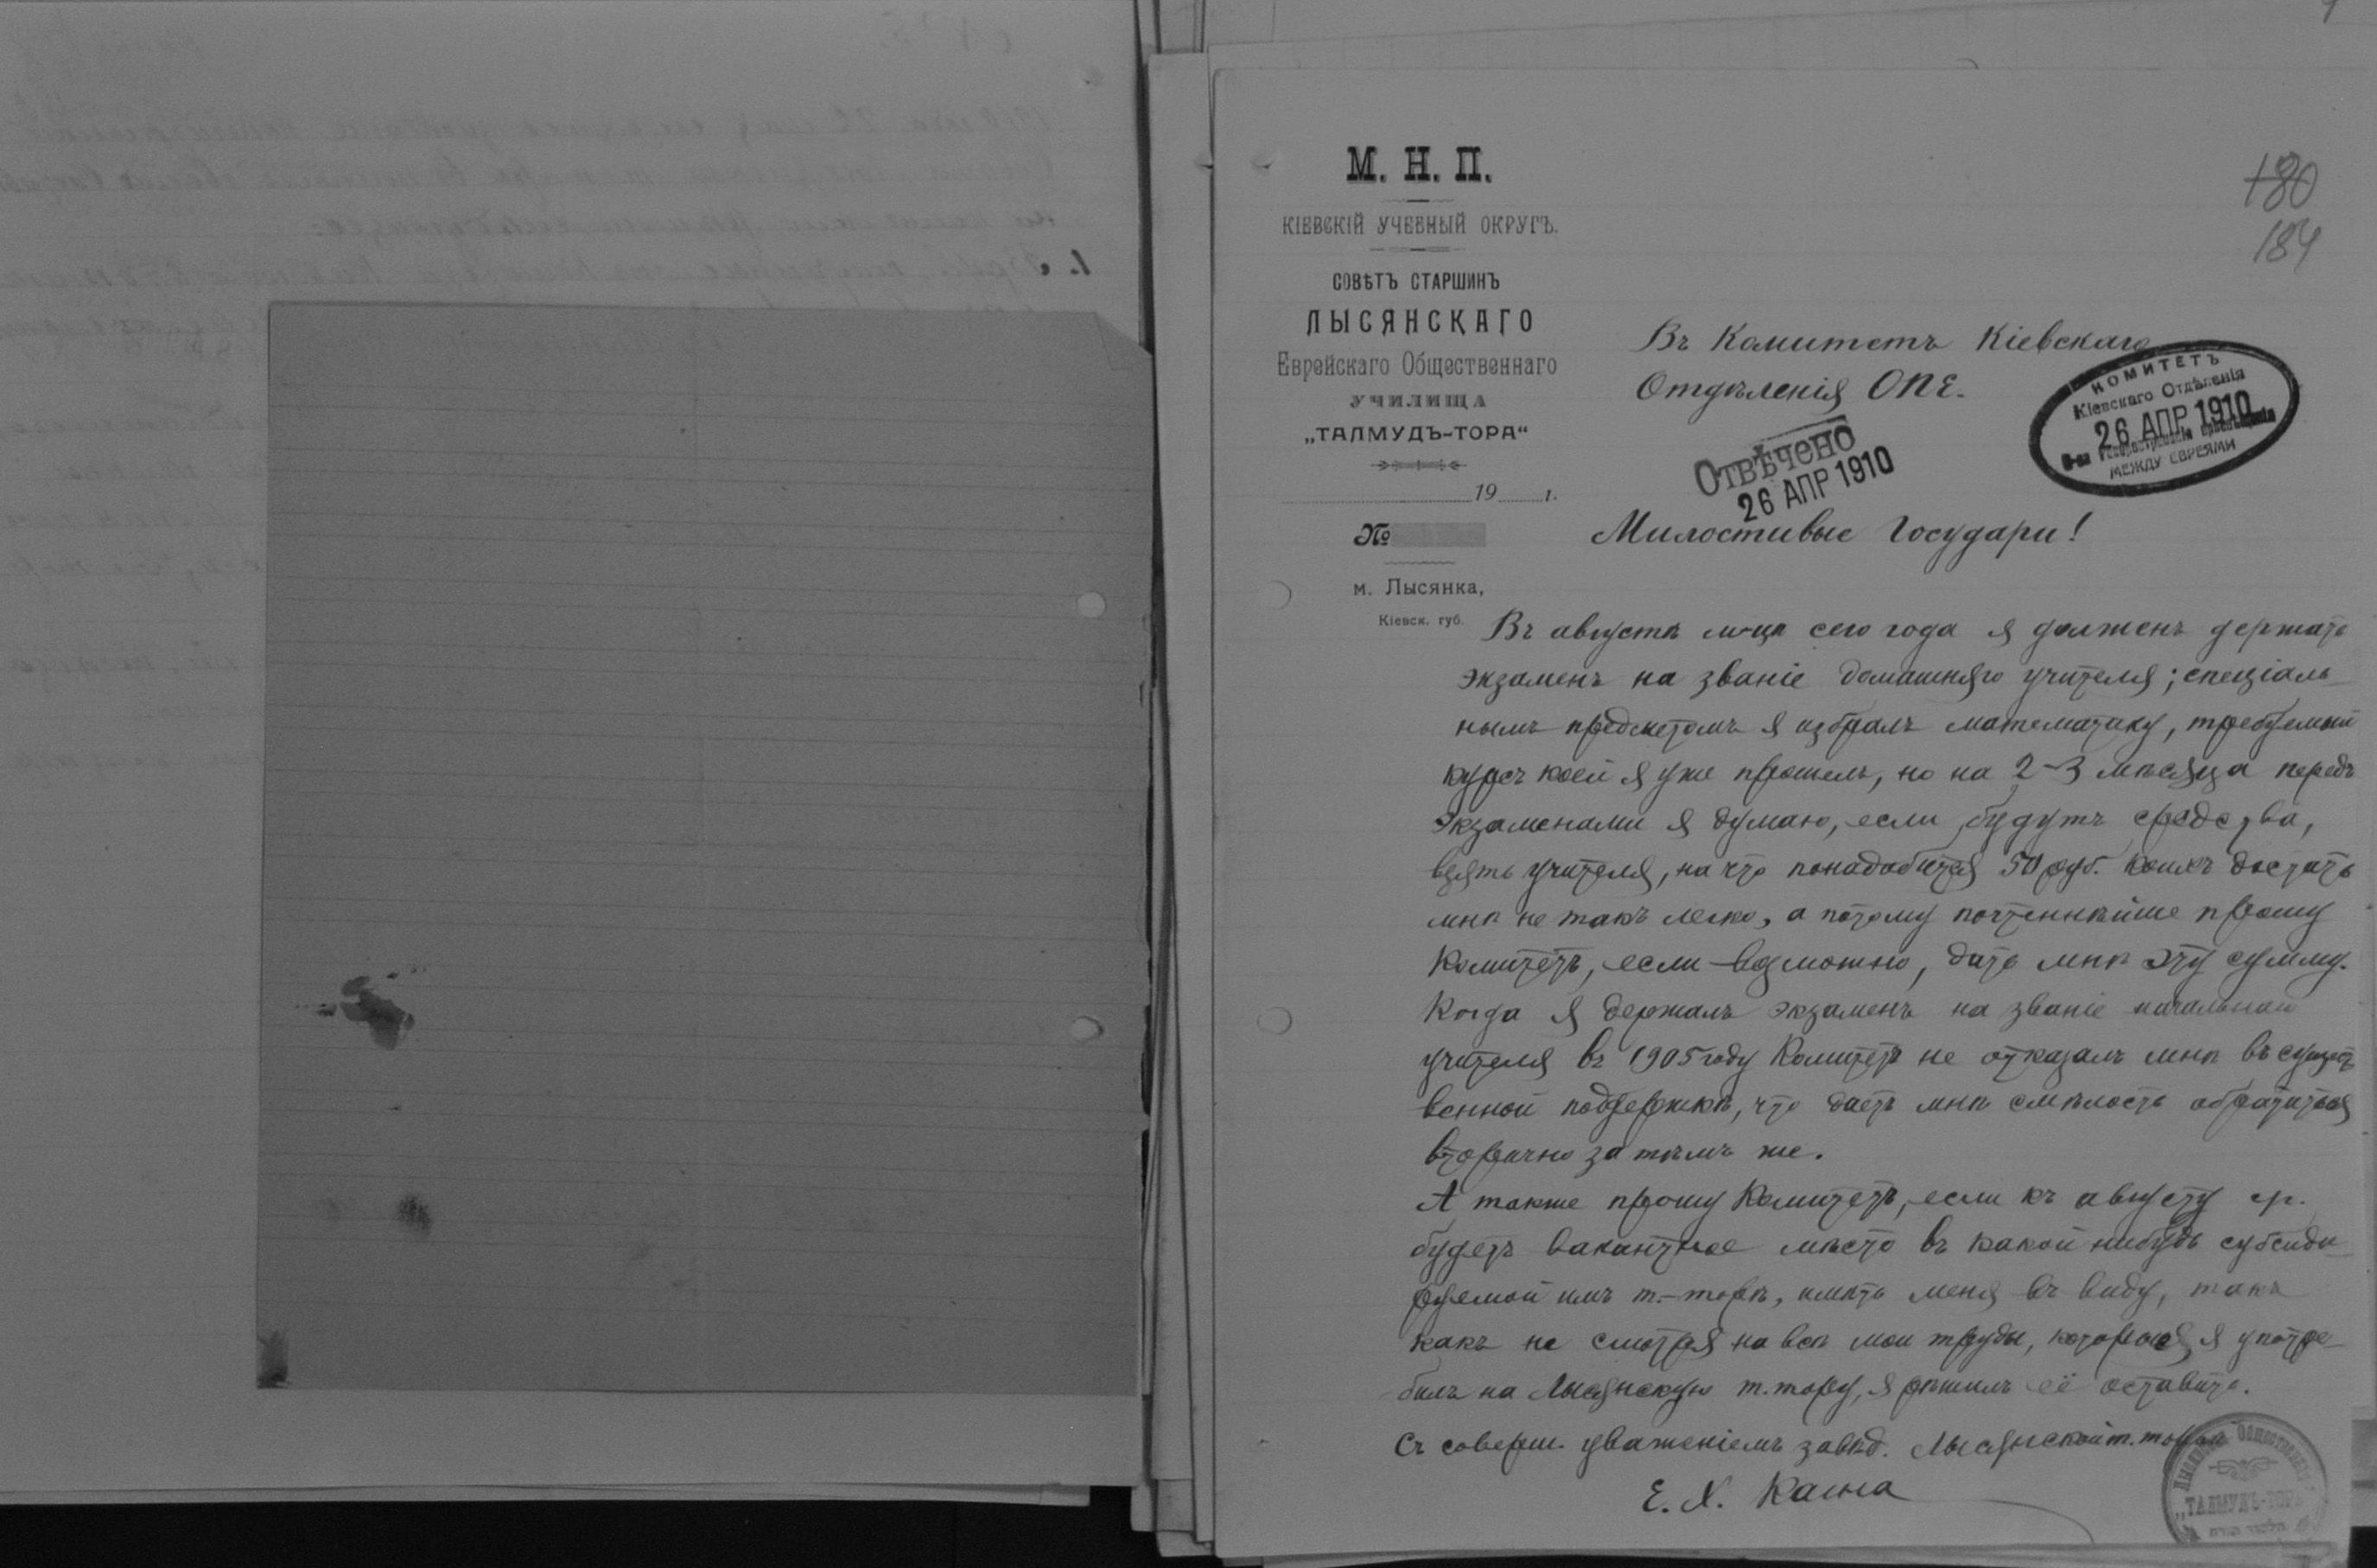 М. Н. П.
КІЕВСКІЙ УЧЕБНЫЙ ОКРУГЪ.
СОВѢТЪ СТАРШИНЪ
ЛЫСЯНСКАГО
Еврейскаго Общественнаго
УЧИЛИЩА
„ТАЛМУДЪ-ТОРА“
19 г.
№
м. Лысянка,
Кіевск. губ.
180
184
Въ Комитетъ Кіевскаго
Отдѣленія ОПЕ.
КОМИТЕТЪ
Кіевскаго Отдѣленія
26 АПР 1910
О-ва
МЕЖДУ ЕВРЕЯМИ
Отвѣчено
26 АПР 1910
Милостивые Государи!
Въ августѣ м-цѣ сего года я долженъ держать
экзаменъ на званіе домашняго учителя; спеціаль-
нымъ предметомъ я избралъ математику, требуемый
курсъ коей я уже прошелъ, но на 2-3 мѣсяца передъ
экзаменами я думаю, если будутъ средства,
взять учителя, на что понадобится 50 руб. коихъ достать
мнѣ не такъ легко, а потому почтеннѣйше прошу
Комитетъ, если возможно, дать мнѣ эту сумму.
Когда я держалъ экзаменъ на званіе начальнаго
учителя въ 1905 году Комитетъ не отказалъ мнѣ въ сущест
венной поддержкѣ, что даетъ мнѣ смѣлость обратиться
вторично за тѣмъ же.
А также прошу Комитетъ, если къ августу с.г.
будетъ вакантное мѣсто въ какой нибудь субсиди-
руемой имъ т.-торѣ, имѣть меня въ виду, такъ
какъ не смотря на всѣ мои труды, которые я употре-
билъ на Лысянскую т.тору, я рѣшилъ её оставить.
Съ соверш. уваженіемъ завѣд. Лысянской т.торой
Е. Х.
„ТАЛМУДЪ-ТОРА